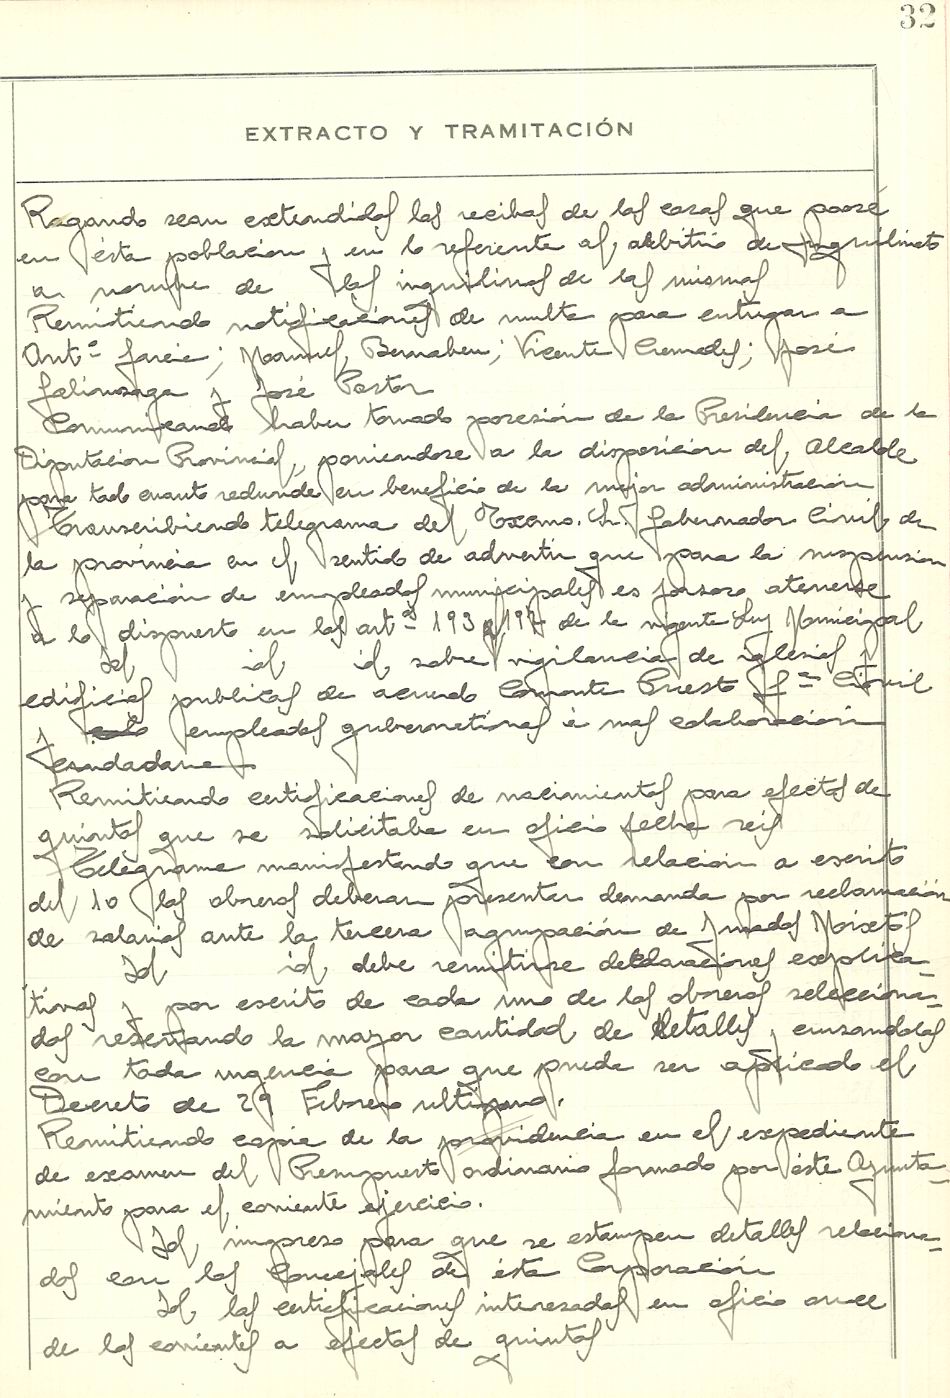 32
EXTRACTO Y TRAMITACIÓN
Rogando sean extendidos los recibos de las casas que poosé
en ésta poblacion y en lo referente al arbitrio de inquilinato
a nombre de los inquilinos de las mismas
Remitiendo notificaciones de multa para entregar a
Antº Garcia; Manuel Bernabeu; Vicente Cremades; José
Galinsoga y José Pastor
Comunicando haber tomado posesión de la Presidencia de la
Diputacion Provincial, poniendose a la disposicion del Alcalde
para todo cuanto redunde en beneficio de la mejor administracion
Transcribiendo telegrama del Excmo. Sr. Gobernador Civil de
la provincia en el sentido de advertir que para la suspension
y separación de empleados municipales es forzoso atenerse
a lo dispuesto en los artº 193 y 197 de la vigente Ley Municipal
Id id id sobre vigilancia de iglesias y
edificios publicos de acuerdo Comante Puesto Gª Civil
y empleados gubernativos è mas colaboracion
ciudadana
Remitiendo certificaciones de nacimientos para efectos de
quintas que se solicitaba en oficio fecha seis
Telégrama manifestando que con relación a escrito
del 10 los obreros deberan presentar demanda por reclamación
de salarios ante la tercera agrupación de Jurados Mixtos
Id id debe remitirse declaraciones explica-
tivas y por escrito de cada uno de los obreros selecciona-
dos reseñando la mayor cantidad de detalles, cursandolas
con toda urgencia para que pueda ser aplicado el
Decreto de 29 Febrero ultimo.
Remitiendo copia de la providencia en el expediente
de examen del Presupuesto ordinario formado por éste Ayunta-
miento para el corriente ejercicio.
Id impreso para que se estampen detalles relaciona-
dos con los Concejales de ésta Corporación
Id las certificaciones interesadas en oficio once
de los corrientes a efectos de quintas